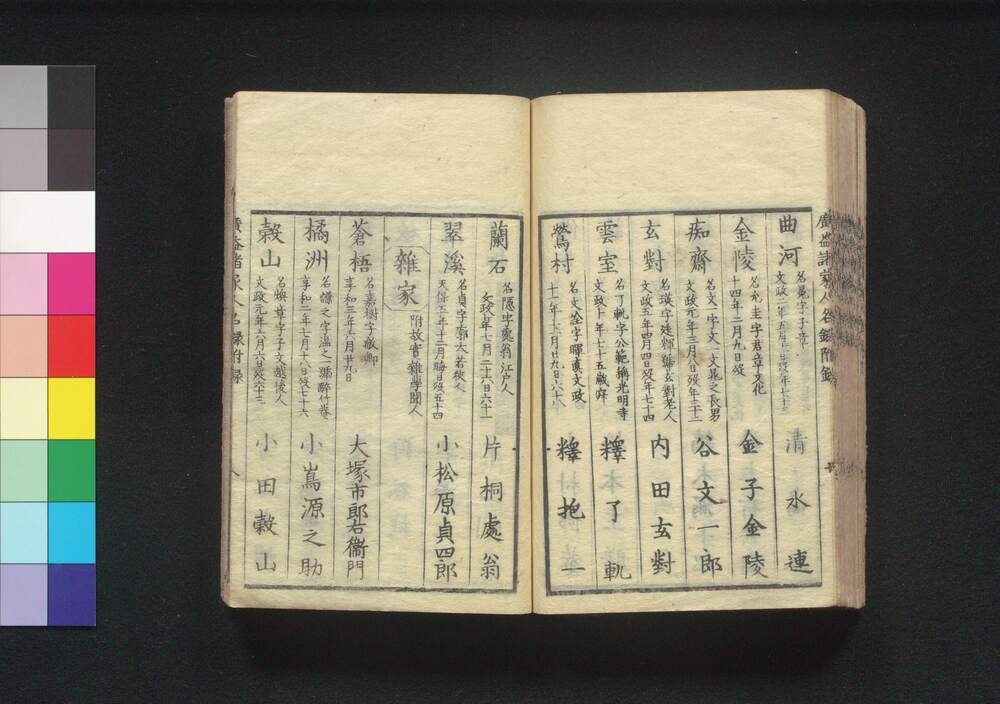 廣益諸家人名録附録
曲河
名晃字子章
清水連
金陵
名允圭字君章文化
十四年二月九日歿
金子金陵
痴齋
名文一字文一文晁之長男
文政元年三月八日歿年三十二
谷文一郎
玄對
名瑛字廷輝號玄對老人
文政五年四月四日歿年七十四
内田玄對
雲室
名了軌字公範稱光明寺
文政十年七十五歳寂
釋了軌
鶯村
名文詮字暉眞文政
十一年十一月廿九日六十八
釋抱一
蘭石
名隱字處翁江戸人
文政年七月二十六日六十一
片桐處翁
翠溪
名貞字廓大若狹人
天保五年十二月晦日歿五十四
小松原貞四郎
雜家
附故實雜學聞人
蒼梧
名嘉樹字敬卿
享和三年六月廿九日
大塚市郎右衞門
橘洲
名謙之字温之一號醉竹巷
享和二年七月十八日歿七十六
小嶌源之助
穀山
名煥章字子文越後人
文政元年六月六日歿六十三
小田穀山
廣益諸家人名録附録
八